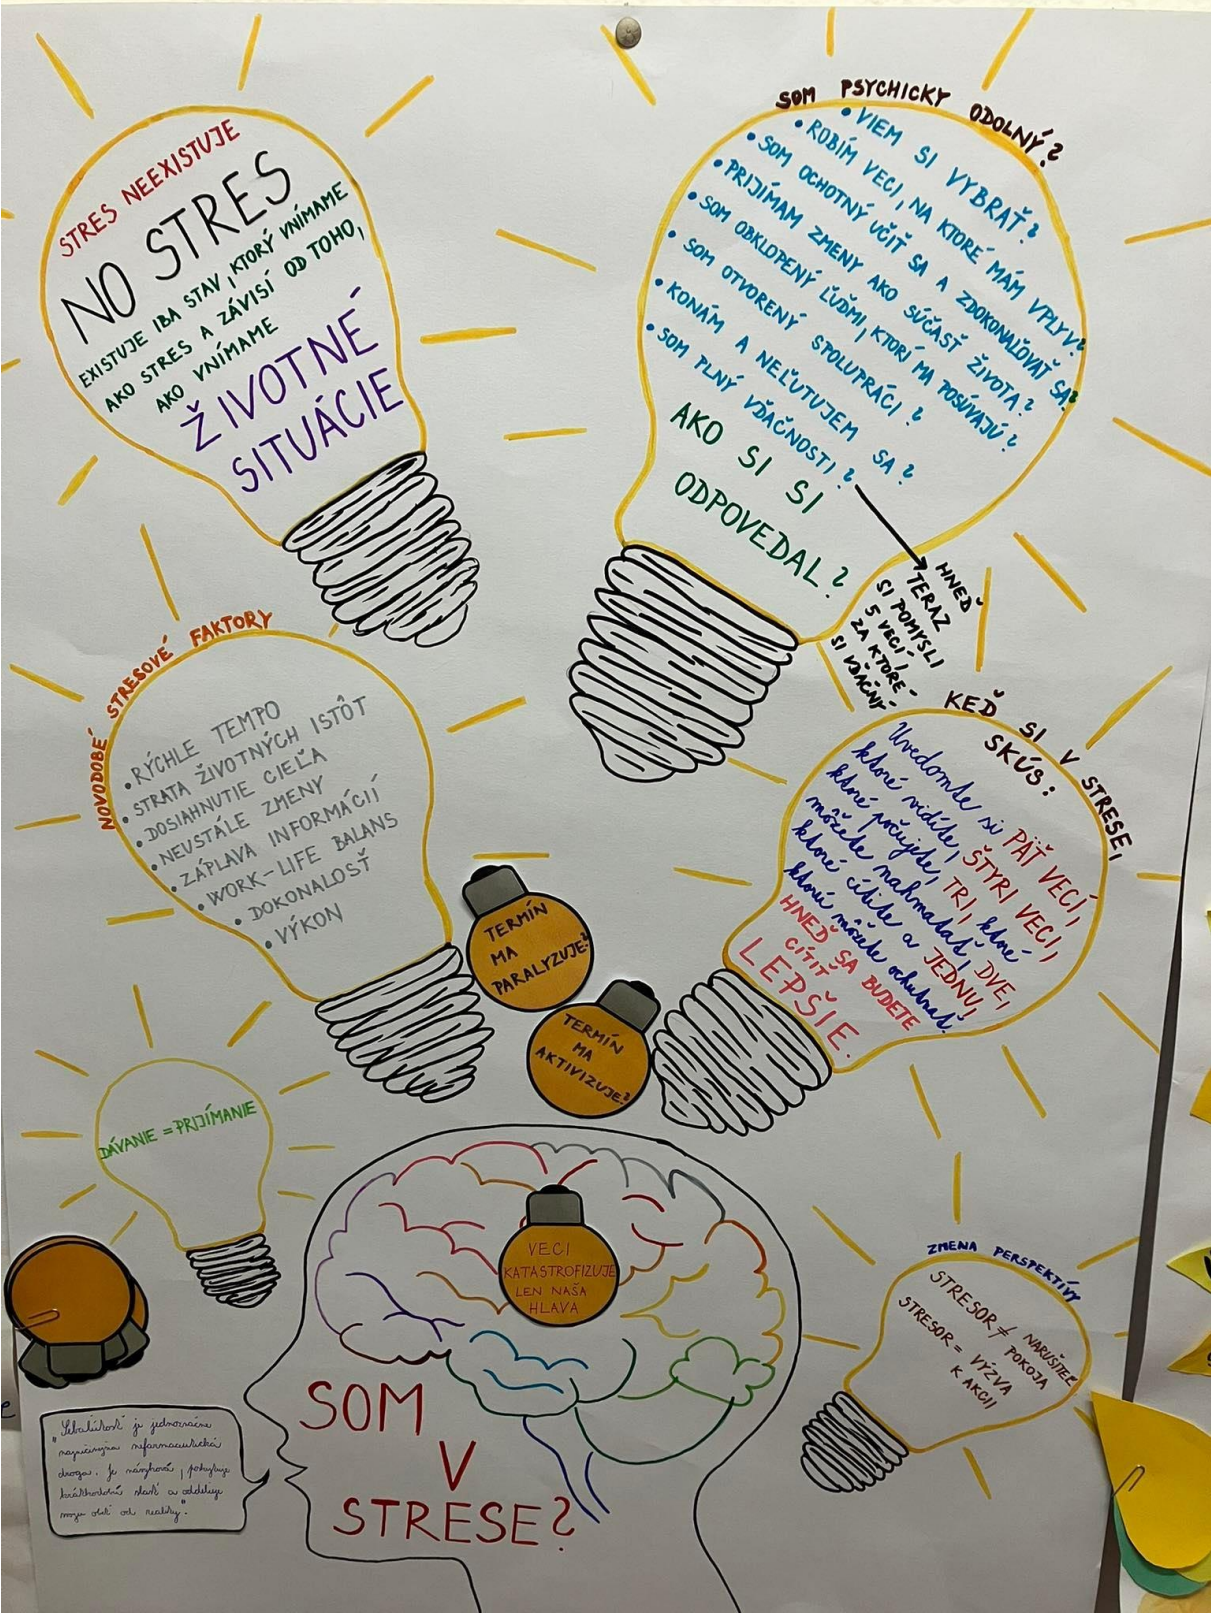 STRES NEEXISTUJE
NO STRES
EXISTUJE IBA STAV, KTORÝ VNÍMAME
AKO STRES A ZÁVISÍ OD TOHO,
AKO VNÍMAME
ŽIVOTNÉ
SITUÁCIE
SOM PSYCHICKY ODOLNÝ?
• VIEM SI VYBRAŤ?
• ROBÍM VECI, NA KTORÉ MÁM VPLYV?
• SOM OCHOTNÝ UČIŤ SA A ZDOKONAĽOVAŤ SA?
• PRIJÍMAM ZMENY AKO SÚČASŤ ŽIVOTA?
• SOM OBKLOPENÝ ĽUĎMI, KTORÍ MA POSÚVAJÚ?
• SOM OTVORENÝ SPOLUPRÁCI?
• KONÁM A NEĽUTUJEM SA?
• SOM PLNÝ VĎAČNOSTI?
AKO SI SI
ODPOVEDAL?
HNEĎ
TERAZ
SI POMYSLI
5 VECÍ,
ZA KTORÉ
SI VĎAČNÝ
NOVODOBÉ STRESOVÉ FAKTORY
• RÝCHLE TEMPO
• STRATA ŽIVOTNÝCH ISTÔT
• DOSIAHNUTIE CIEĽA
• NEUSTÁLE ZMENY
• ZÁPLAVA INFORMÁCIÍ
• WORK-LIFE BALANS
• DOKONALOSŤ
• VÝKON
KEĎ SI V STRESE,
SKÚS:
Uvedomte si PÄŤ VECÍ,
ktoré vidíte, ŠTYRI VECI,
ktoré počujete, TRI, ktoré
môžete nahmatať, DVE,
ktoré cítite a JEDNU,
ktorú môžete ochutnať.
HNEĎ SA BUDETE
CÍTIŤ
LEPŠIE.
TERMÍN
MA
PARALYZUJE?
TERMÍN
MA
AKTIVIZUJE?
DÁVANIE = PRIJÍMANIE
VECI
KATASTROFIZUJE
LEN NAŠA
HLAVA
ZMENA PERSPEKTÍVY
STRESOR ≠ NARUŠITEĽ
POKOJA
STRESOR = VÝZVA
K AKCII
SOM
V
STRESE?
"Sebaľútosť je jednoznačne
najničivejšia nefarmaceutická
droga. Je návyková, poskytuje
krátkodobú slasť a oddeľuje
svoju obeť od reality."